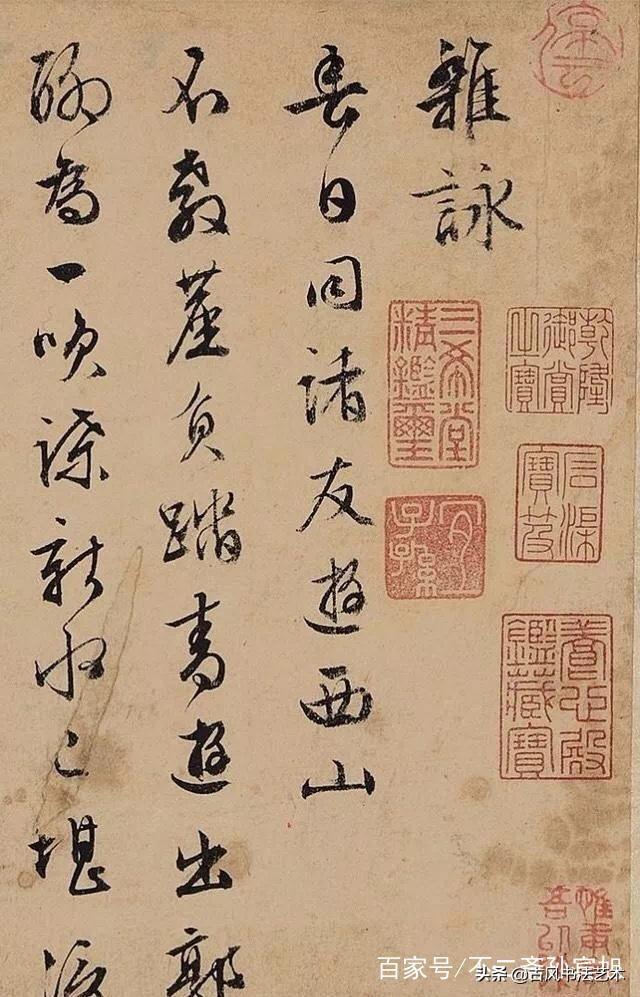 雜詠
春日同諸友遊西山
不教塵負踏青遊出郭
聊為一咲謀新水已堪
乾隆御賞之寶
三希堂精鑑璽
石渠寶笈
宜子孫
養心殿鑑藏寶
百家号/不二斋孙宾旭
头条 @古风书法艺术